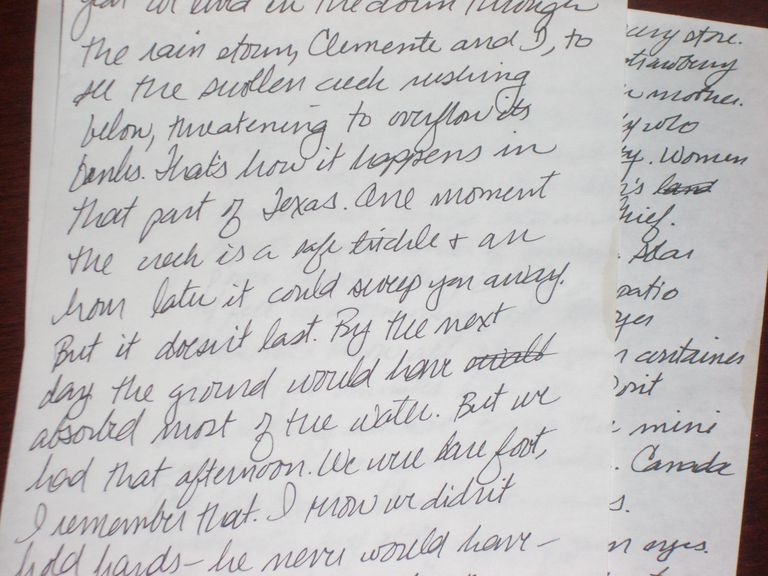 the rain storm, Clemente and I, to
see the swollen creek rushing
below, threatening to overflow its
banks. That's how it happens in
that part of Texas. One moment
the creek is a safe trickle & an
hour later it could sweep you away.
But it doesn't last. By the next
day the ground would have
absorbed most of the water. But we
had that afternoon. We were barefoot,
I remember that. I know we didn't
hold hands – he never would have –
store.
mother.
who
Women
land
patio
mini
Canada
eyes.